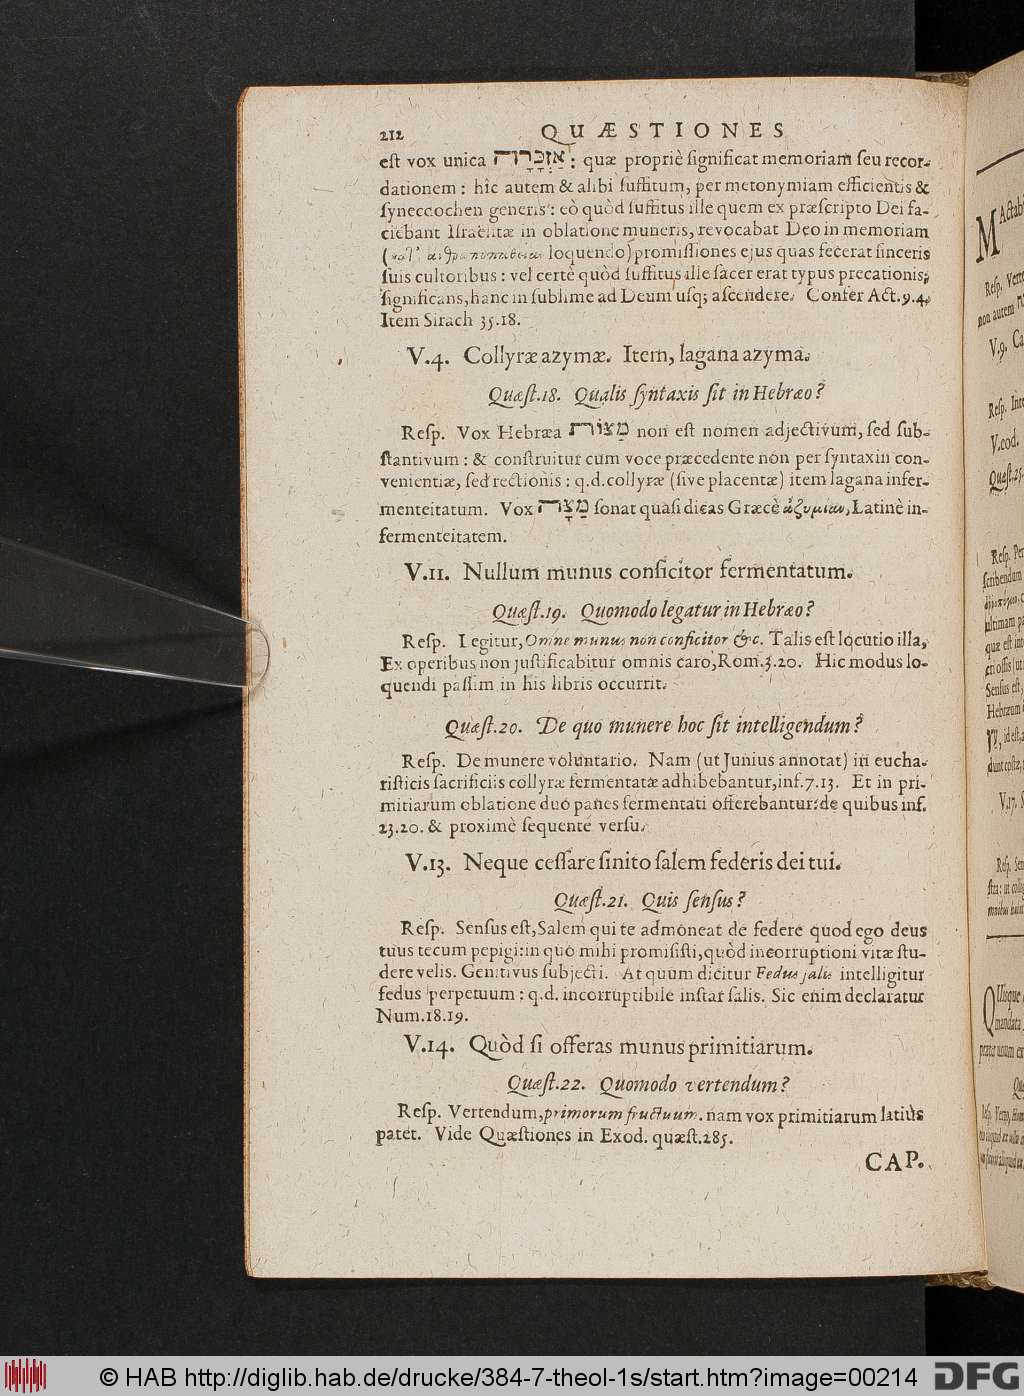 212 QUÆSTIONES
est vox unica אַזְכָּרָה: quæ propriè significat memoriam seu recor-
dationem: hîc autem & alibi suffitum, per metonymiam efficientis &
synecdochen generis: eò quòd suffitus ille quem ex præscripto Dei fa-
ciebant Israëlitæ in oblatione muneris, revocabat Deo in memoriam
( loquendo) promissiones ejus quas fecerat sinceris
suis cultoribus: vel certè quòd suffitus ille sacer erat typus precationis;
significans, hanc in sublime ad Deum usq; ascendere. Confer Act.9.4.
Item Sirach 35.18.
V.4. Collyræ azymæ. Item, lagana azyma.
Quæst.18. Qualis syntaxis sit in Hebræo?
Resp. Vox Hebræa מַצּוֹת non est nomen adjectivum, sed sub-
stantivum: & construitur cum voce præcedente non per syntaxin con-
venientiæ, sed rectionis: q.d. collyræ (sive placentæ) item lagana infer-
menteitatum. Vox מַצָּה sonat quasi dicas Græcè ἀζυμίαν, Latinè in-
fermenteitatem.
V.11. Nullum munus conficitor fermentatum.
Quæst.19. Quomodo legatur in Hebræo?
Resp. Legitur, Omne munus non conficitor &c. Talis est locutio illa,
Ex operibus non justificabitur omnis caro, Rom.3.20. Hic modus lo-
quendi passim in his libris occurrit.
Quæst.20. De quo munere hoc sit intelligendum?
Resp. De munere voluntario. Nam (ut Junius annotat) in eucha-
risticis sacrificiis collyræ fermentatæ adhibebantur, inf.7.13. Et in pri-
mitiarum oblatione duo panes fermentati offerebantur: de quibus inf.
23.20. & proximè sequente versu.
V.13. Neque cessare sinito salem federis dei tui.
Quæst.21. Quis sensus?
Resp. Sensus est, Salem qui te admoneat de federe quod ego deus
tuus tecum pepigi: in quo mihi promisisti, quòd incorruptioni vitæ stu-
dere velis. Genitivus subjecti. At quum dicitur Fedus salis intelligitur
fedus perpetuum: q.d. incorruptibile instar salis. Sic enim declaratur
Num.18.19.
V.14. Quòd si offeras munus primitiarum.
Quæst.22. Quomodo vertendum?
Resp. Vertendum, primorum fructuum. nam vox primitiarum latiùs
patet. Vide Quæstiones in Exod. quæst.285.
CAP.
© HAB http://diglib.hab.de/drucke/384-7-theol-1s/start.htm?image=00214 DFG